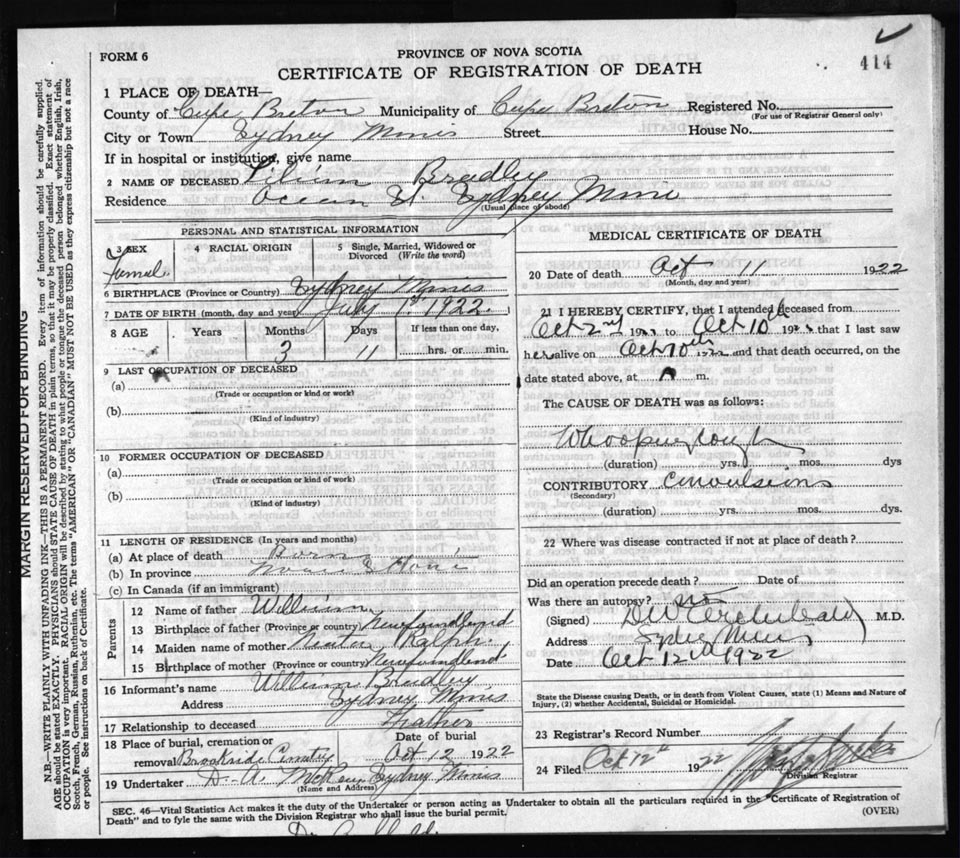 FORM 6
PROVINCE OF NOVA SCOTIA
CERTIFICATE OF REGISTRATION OF DEATH
414
1 PLACE OF DEATH—
County of Cape Breton Municipality of Cape Breton Registered No.
(For use of Registrar General only)
City or Town Sydney Mines Street House No.
If in hospital or institution, give name
2 NAME OF DECEASED Lilian Bradley
Residence Ocean St. Sydney Mines
(Usual place of abode)
PERSONAL AND STATISTICAL INFORMATION
3 SEX
Femal
4 RACIAL ORIGIN
5 Single, Married, Widowed or Divorced (Write the word)
6 BIRTHPLACE (Province or Country) Sydney Mines
7 DATE OF BIRTH (month, day and year) July 1st 1922
8 AGE Years Months Days If less than one day,
3 11 hrs. or min.
9 LAST OCCUPATION OF DECEASED
(a)
(Trade or occupation or kind or work)
(b)
(Kind of industry)
10 FORMER OCCUPATION OF DECEASED
(a)
(Trade or occupation or kind of work)
(b)
(Kind of industry)
11 LENGTH OF RESIDENCE (In years and months)
(a) At place of death Born
(b) In province
(c) In Canada (if an immigrant)
Parents
12 Name of father William
13 Birthplace of father (Province or country) Newfoundland
14 Maiden name of mother Ralph
15 Birthplace of mother (Province or country) Newfoundland
16 Informant's name William Bradley
Address Sydney Mines
17 Relationship to deceased Father
18 Place of burial, cremation or removal Brookside Cemetry
Date of burial
Oct 12 1922
19 Undertaker Sydney Mines
(Name and Address)
MEDICAL CERTIFICATE OF DEATH
20 Date of death Oct 11 1922
(Month, day and year)
21 I HEREBY CERTIFY, that I attended deceased from
Oct 2nd 1922 to Oct 10th 1922 that I last saw
her alive on Oct 10th 1922 and that death occurred, on the
date stated above, at m.
The CAUSE OF DEATH was as follows:
Whooping Cough
(duration) yrs. mos. dys
CONTRIBUTORY Convulsions
(Secondary)
(duration) yrs. mos. dys
22 Where was disease contracted if not at place of death?
Did an operation precede death? Date of
Was there an autopsy? no
(Signed) M.D.
Address Sydney Mines
Date Oct 12th 1922
State the Disease causing Death, or in death from Violent Causes, state (1) Means and Nature of
Injury, (2) whether Accidental, Suicidal or Homicidal.
23 Registrar's Record Number
24 Filed Oct 12th 1922
Division Registrar
SEC. 46—Vital Statistics Act makes it the duty of the Undertaker or person acting as Undertaker to obtain all the particulars required in the "Certificate of Registration of
Death" and to fyle the same with the Division Registrar who shall issue the burial permit.
(OVER)
MARGIN RESERVED FOR BINDING
N.B.—WRITE PLAINLY WITH UNFADING INK—THIS IS A PERMANENT RECORD. Every item of information should be carefully supplied.
AGE should be stated EXACTLY. PHYSICIANS should STATE CAUSE OF DEATH in plain terms, so that it may be properly classified. Exact statement of
OCCUPATION is very important. RACIAL ORIGIN will be described by stating to what people or tongue the deceased person belonged whether English, Irish,
Scotch, French, German, Russian, Ruthenian, etc. The terms "AMERICAN" OR "CANADIAN" MUST NOT BE USED as they express citizenship but not a race
or people. See instructions on back of Certificate.